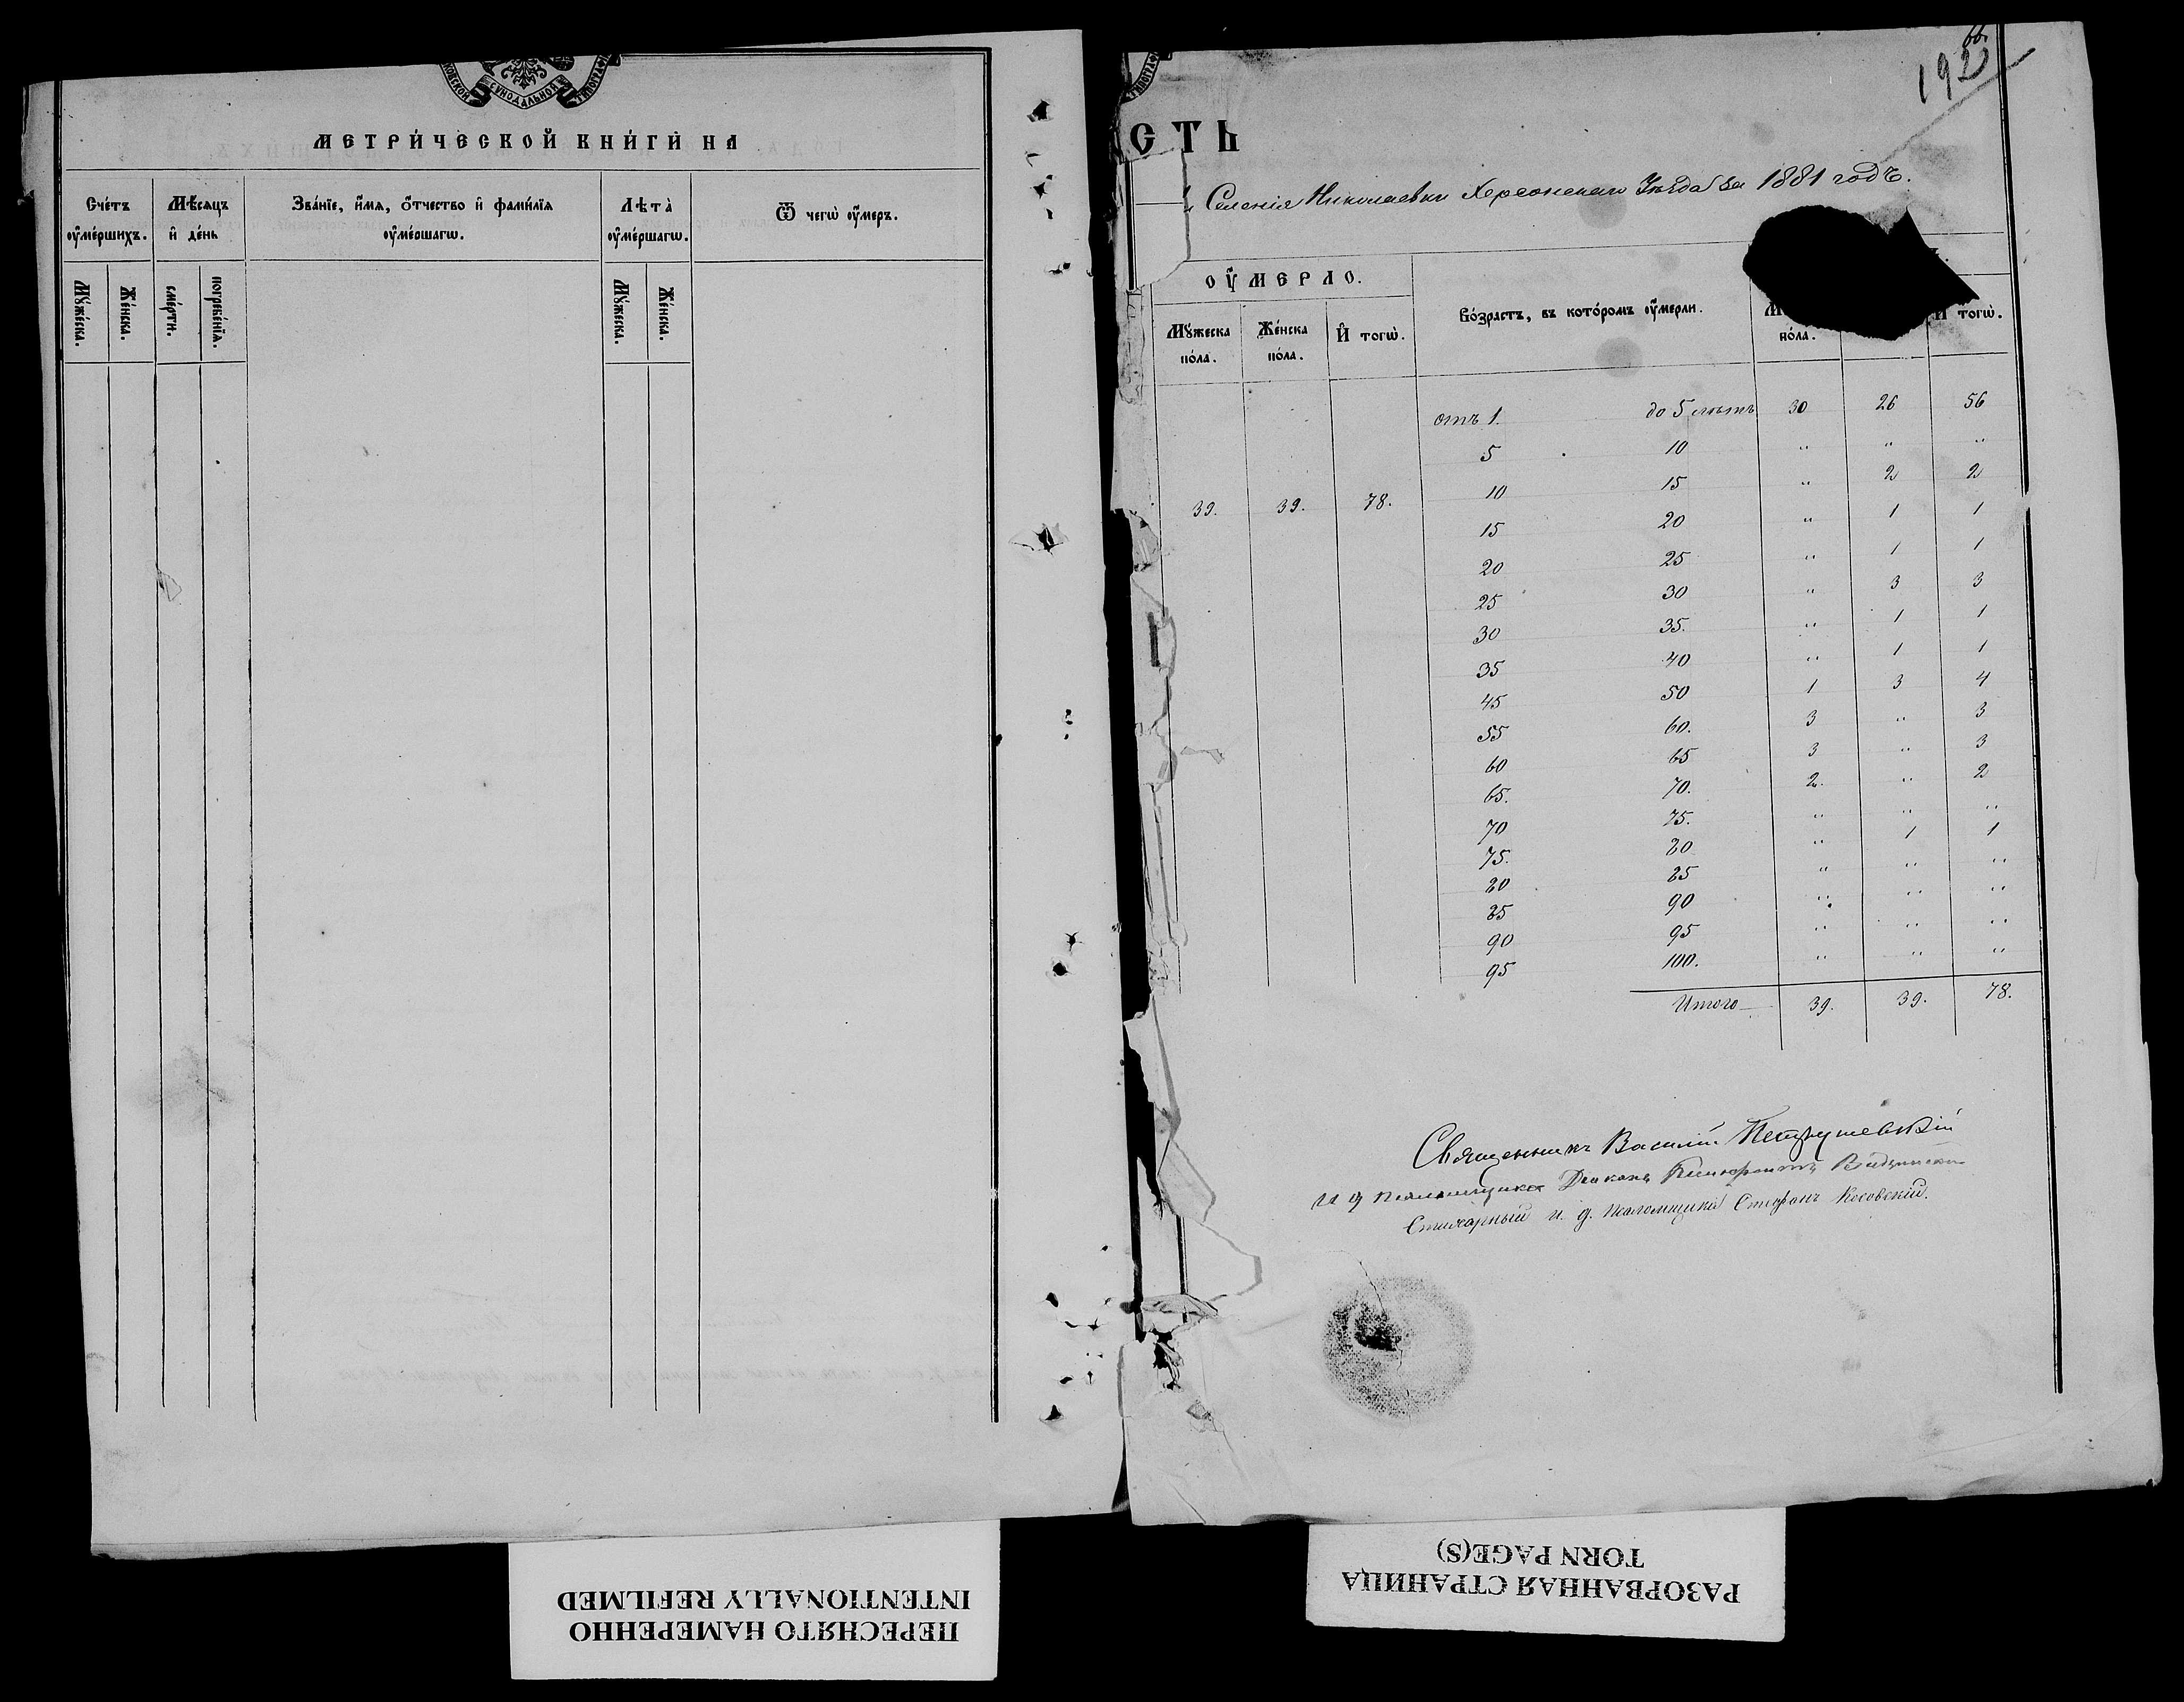 МОСКОВСКОЙ СѴНОДАЛЬНОЙ ТИПОГРАФ
МЕТРИ́ЧЕСКОЙ КНИ́ГИ НА
Сче́тъ ᲂу҆ме́ршихъ.
Мѣ́сяцъ и҆ де́нь
Зва́нїе, и҆́мѧ, ѻ҆́тчество и҆ фами́лїя ᲂу҆ме́ршагѡ.
Лѣта̀ ᲂу҆ме́ршагѡ.
Ѿ чегѡ̀ ᲂу҆́меръ.
Мꙋ́жеска.
Же́нска.
сме́рти.
погребе́нїѧ.
Мꙋ́жеска.
Же́нска.
66.
192
СТЬ
Селенія Николаевки Херсонскаго Уѣзда за 1881 годъ.
ᲂу҆́мерло.
Во́зрастъ, въ кото́ромъ ᲂу҆́мерли.
Мꙋ́жеска по́ла.
Же́нска по́ла.
И҆ тогѡ̀.
по́ла.
И҆ тогѡ̀.
отъ 1. до 5 лѣтъ 30 26 56
5 10 " " "
10 15 " 2 2
39. 39. 78.
15 20 " 1 1
20 25 " 1 1
25 30 " 3 3
30 35. " 1 1
35 40 " 1 1
45 50 1 3 4
55 60. 3 " 3
60 65 3 " 3
65. 70. 2. " 2
70 75. " " "
75. 80 " 1 1
80 85 " " "
85 90 " " "
90 95 " " "
95 100. " " "
Итого 39. 39. 78.
Священникъ Василій Петрушевскій
И д псаломщика Діаконъ
Стихарный и. д. псаломщика Стефанъ Косовскій.
ПЕРЕСНЯТО НАМЕРЕННО
INTENTIONALLY REFILMED
РАЗОРВАННАЯ СТРАНИЦА
TORN PAGE(S)